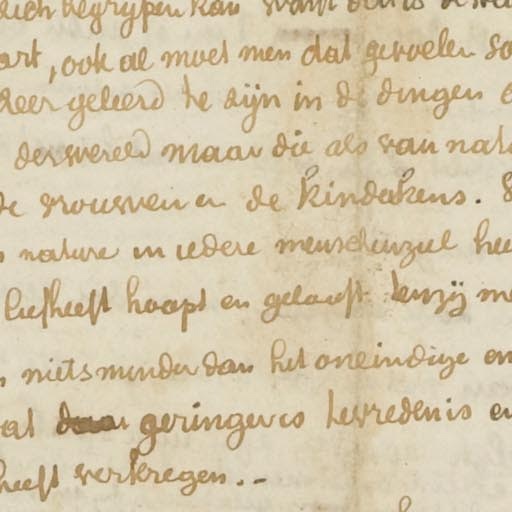 begrijpen kan want
art, ook al moet men dat gevoelen
zeer geleerd te zijn in de dingen
der wereld maar die als van nat
de vrouwen en de kindekens.
nature in iedere menschenziel hee
liefheeft hoopt en gelooft tenzij me
niets minder dan het oneindige en
at daar geringer is tevredenis en
heeft verkregen. -